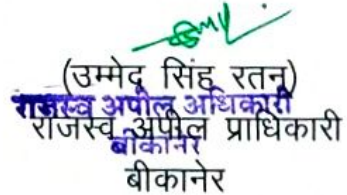 (उम्मेद सिंह रतन)
राजस्व अपील अधिकारी
राजस्व अपील प्राधिकारी
बीकानेर
बीकानेर